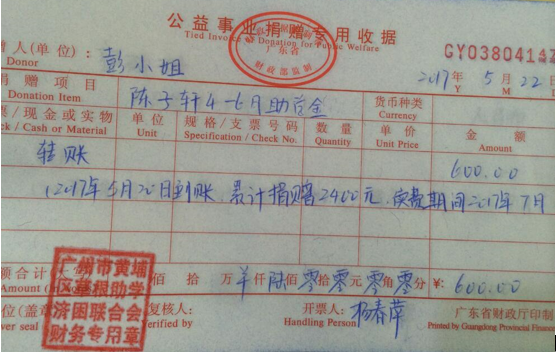 公益事业捐赠专用收据
Tied Invoice of Donation for Public Welfare
广东省
财政部监制
GY0380414
赠人(单位):
Donor
彭小姐
2017年 5月 22日
Y M
捐赠项目
Donation Item
陈子轩4-6月助学金
货币种类
Currency
票/现金或实物
ck / Cash or Material
单位
Unit
规格/支票号码
Specification / Check No.
数量
Quantity
单价
Unit Price
金额
Amount
转账
600.00
(2017年5月20日到账,累计捐赠2400元,
期间2017年7月
额合计(大写)
Amount (in
佰 拾 万 仟 陆佰 零拾 零元 零角 零分 ¥: 600.00
广州市黄埔
区草根助学
济困联合会
财务专用章
位(盖章
ver seal
复核人:
Verified by
开票人:
Handling Person
杨春萍
广东省财政厅印制
Printed by Guangdong Provincial Finance